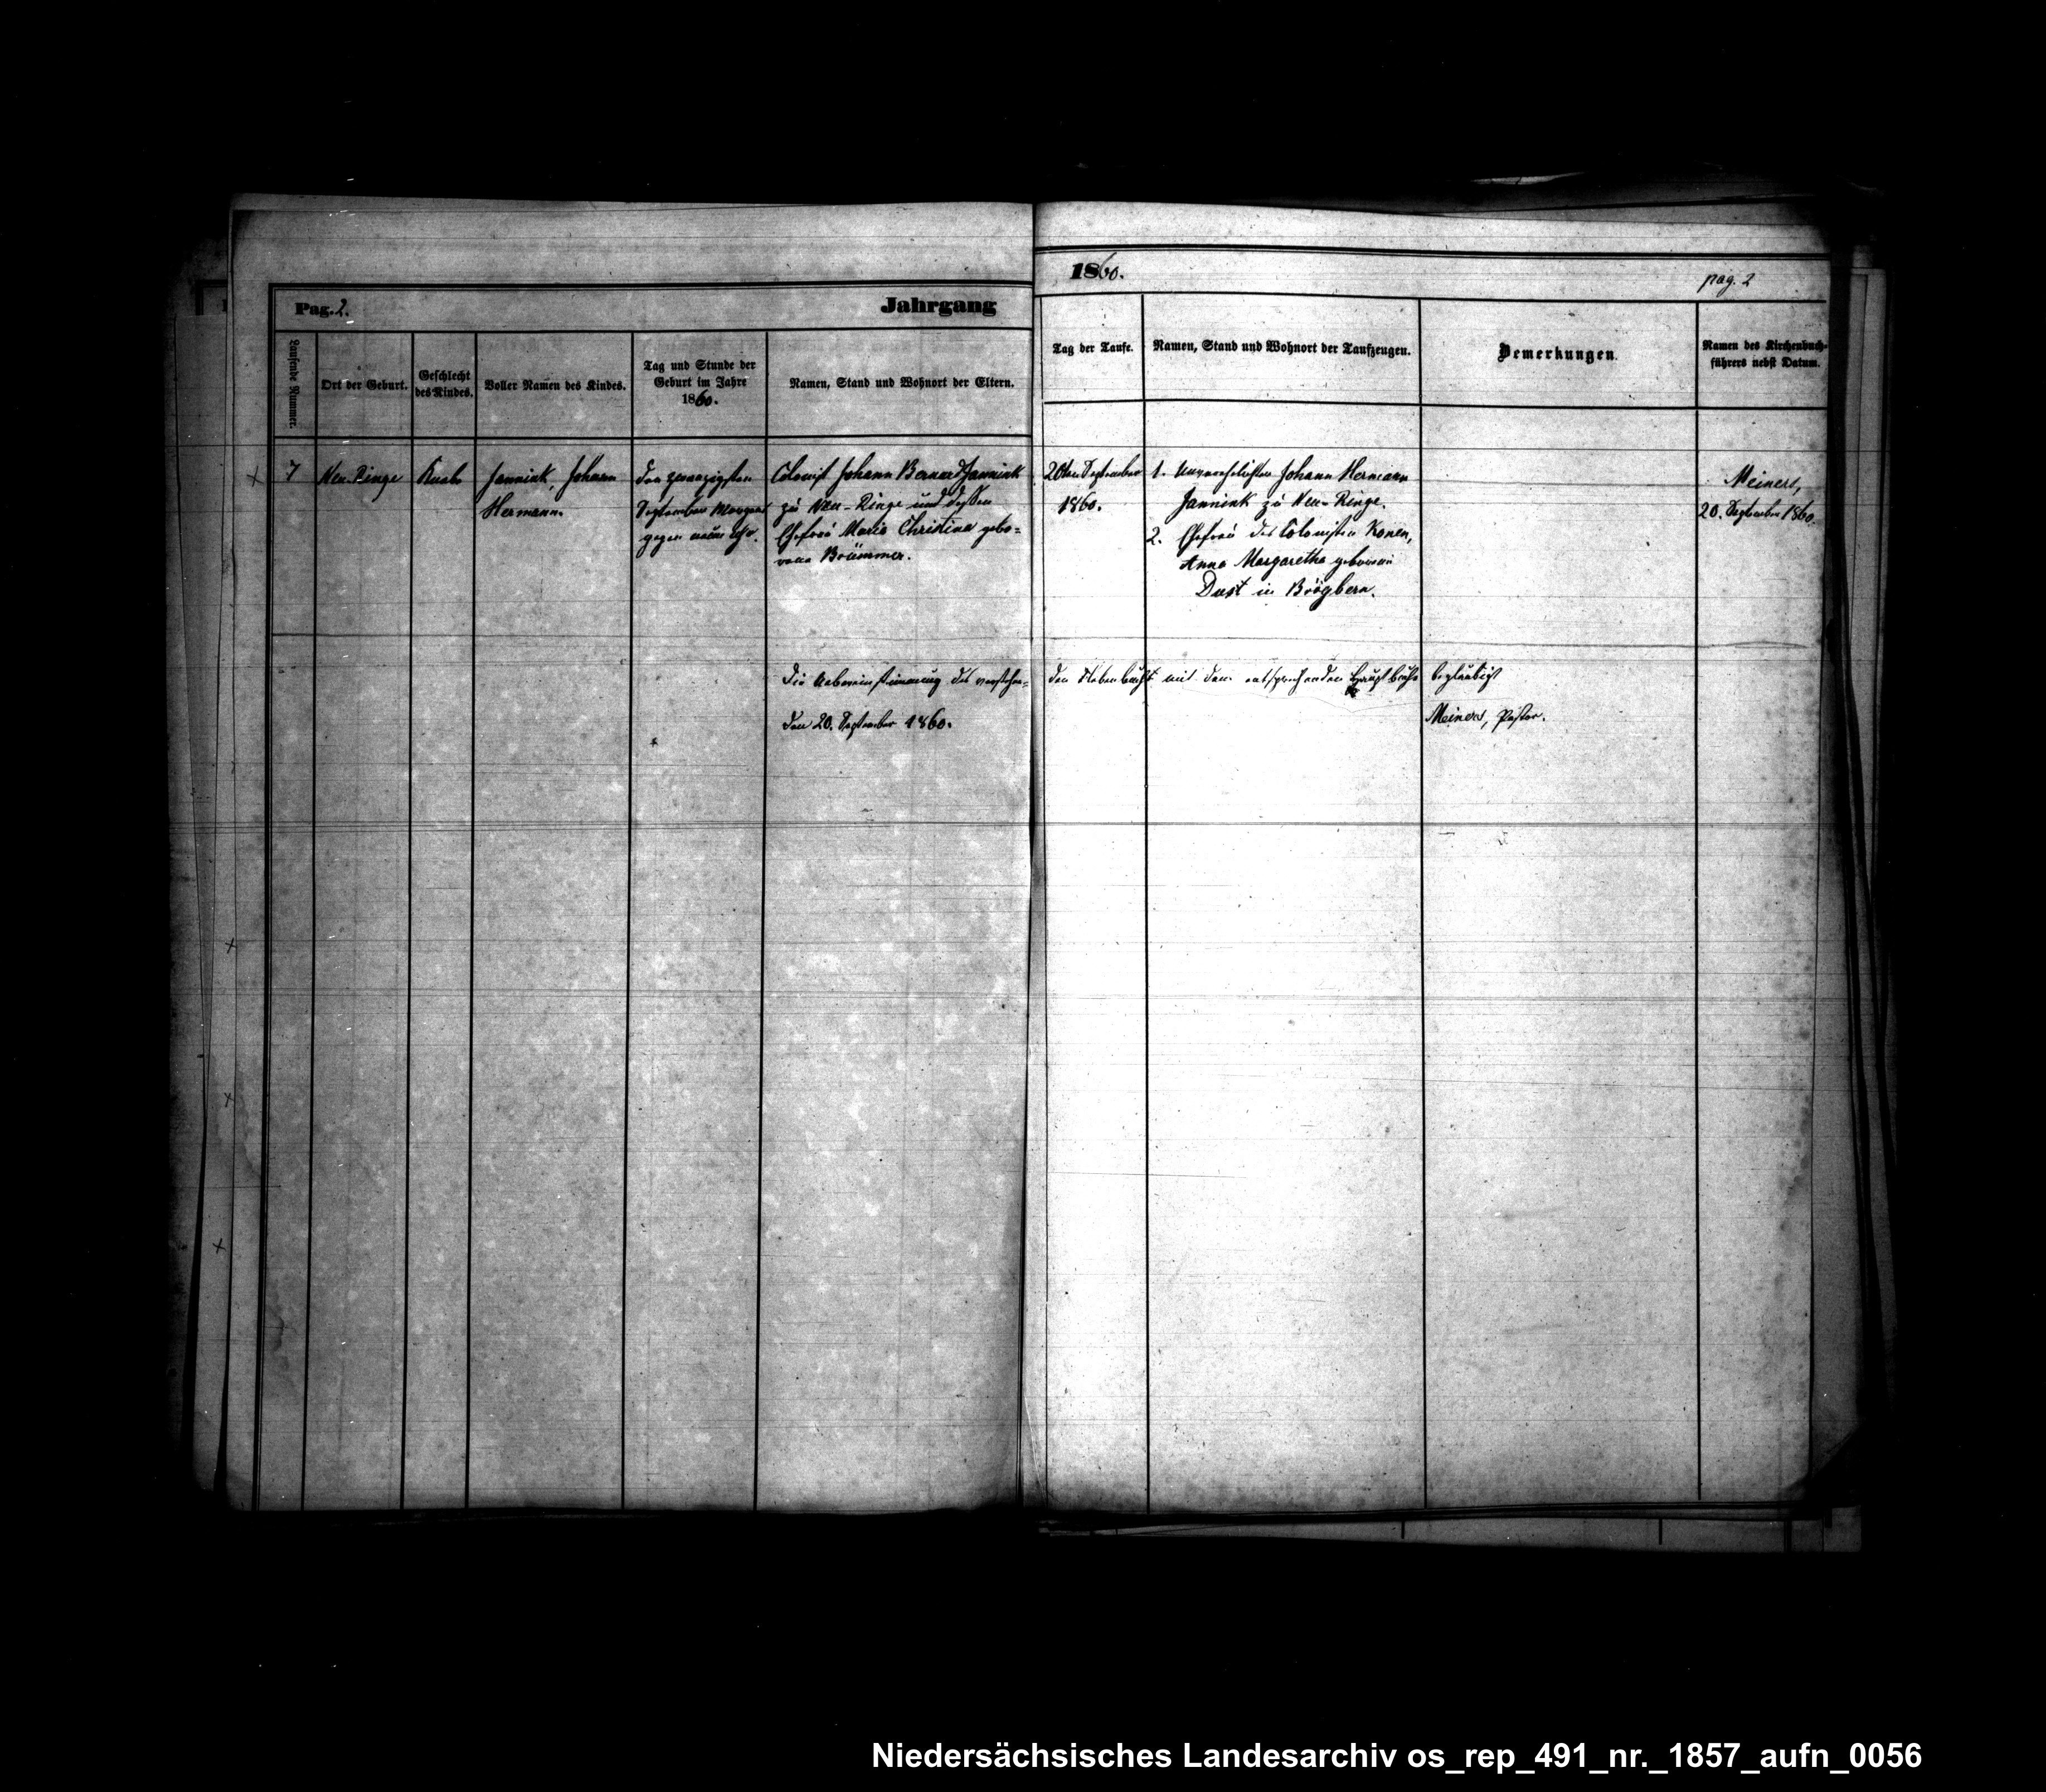 1860.
pag. 2
Pag. 2.
Jahrgang
Laufende Nummer.
Ort der Geburt.
Geschlecht
des Kindes.
Voller Namen des Kindes.
Tag und Stunde der
Geburt im Jahre
1860.
Namen, Stand und Wohnort der Eltern.
Tag der Taufe.
Namen, Stand und Wohnort der Taufzeugen.
Bemerkungen.
Namen des Kirchenbuch-
führers nebst Datum.
7
Neu-Ringe
Knabe
Jannink, Johann
Hermann.
den zwanzigsten
September Morgens
gegen neun Uhr.
Colonist Johann Bernard Jannink
zu Neu-Ringe und dessen
Ehefrau Maria Christina gebo-
rene Brümmer.
20ten September
1860.
1. Unverehelichter Johann Hermann
Jannink zu Neu-Ringe.
2. Ehefrau des Colonisten Konen,
Anna Margaretha geborene
Dust in Brögbern.
Meiners,
20. September 1860.
Die Uebereinstimmung des vorstehen-
den Nebenbuchs mit dem entsprechenden Hauptbuche beglaubigt
den 20. September 1860.
Meiners, Pastor.
Niedersächsisches Landesarchiv os_rep_491_nr._1857_aufn_0056